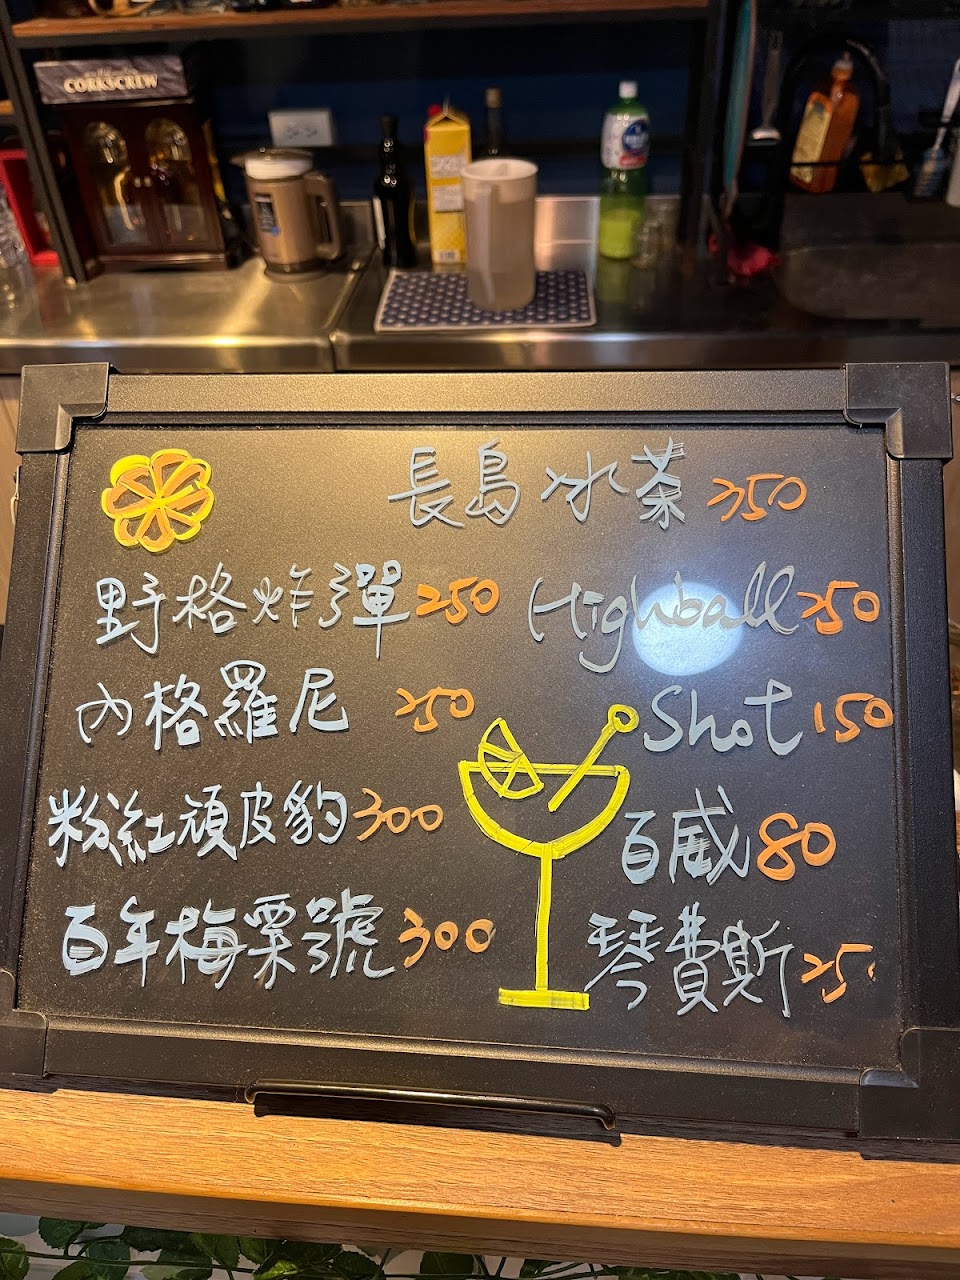 CORKSCREW
長島冰茶 350
野格炸彈 250
Highball 250
內格羅尼 250
Shot 150
粉紅頑皮豹 300
百威 80
百年梅栗號 300
琴費斯 25